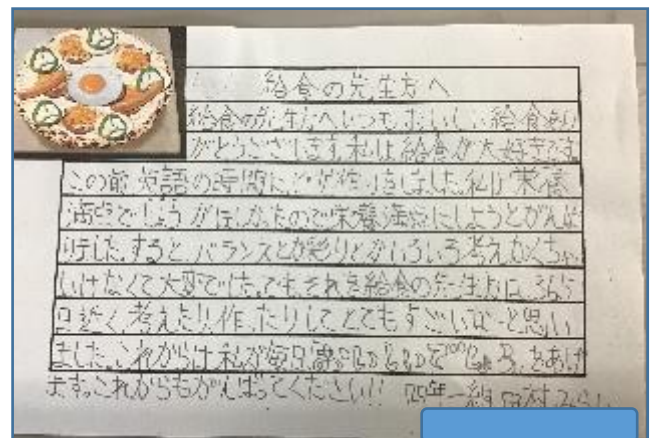 給食の先生方へ
給食の先生方へいつもおいしい給食あり
がとうございます。私は給食が大好きです。
この前英語の時間にピザ作りをしました。私は栄養
満点でしょうがほしかったので栄養満点にしようとがんば
りました。すると、バランスとか彩りとかいろいろ考えなくちゃ
いけなくて大変でした。でもそれを給食の先生方は、365
日近く、考えたり、作ったりしてとてもすごいなーと思い
ました。これからは私が毎日 をあげ
ます。これからもがんばってください!! 四年一組